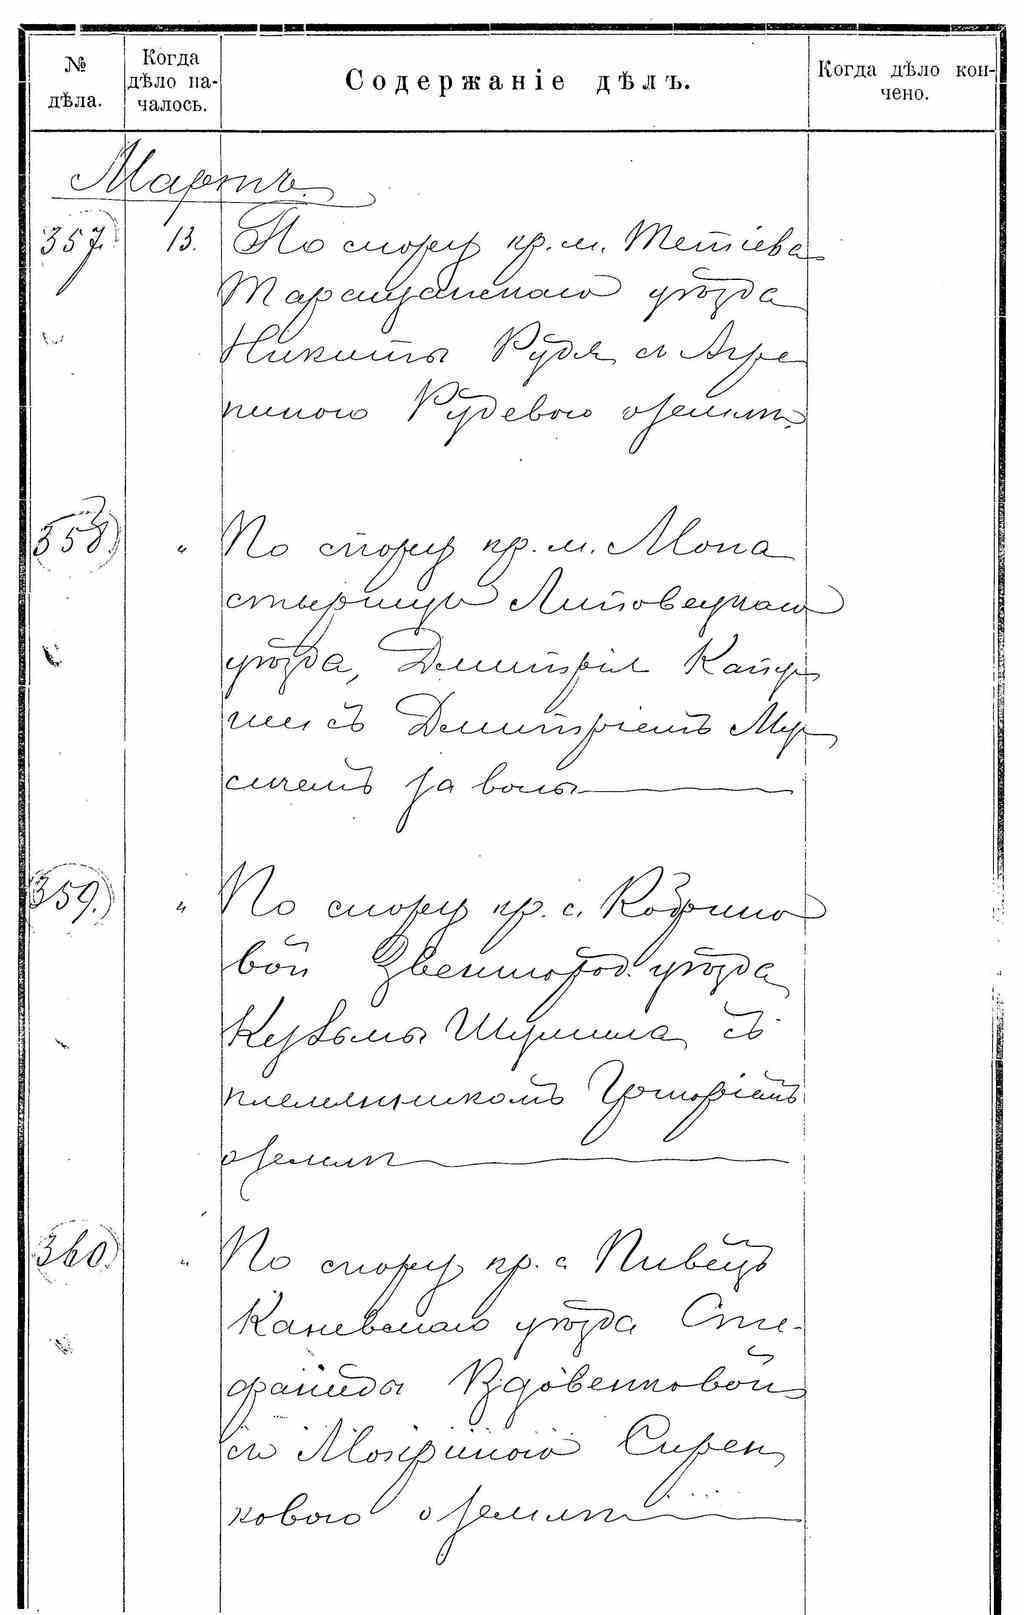 № дѣла.
Когда дѣло началось.
Содержаніе дѣлъ.
Когда дѣло кончено.
Мартъ.
357. 13. По спору кр. м. Тетіева
Таращанскаго уѣзда
Никиты Рудя съ Агре
пиною Рудевою о землѣ.
358. „ По спору кр. м. Мона
стырища Липовецкаго
уѣзда, Дмитрія
съ Дмитріемъ Му
сіемъ за волы
359. „ По спору кр. с. Кобрино
вой Звенигород. уѣзда
Кузьмы Шумила съ
племянникомъ Григоріемъ
о землѣ
360. „ По спору кр. с Пивецъ
Каневскаго уѣзда Сте-
фаниды Вдовенковой
съ Мокриною Сирен
ковою о землѣ